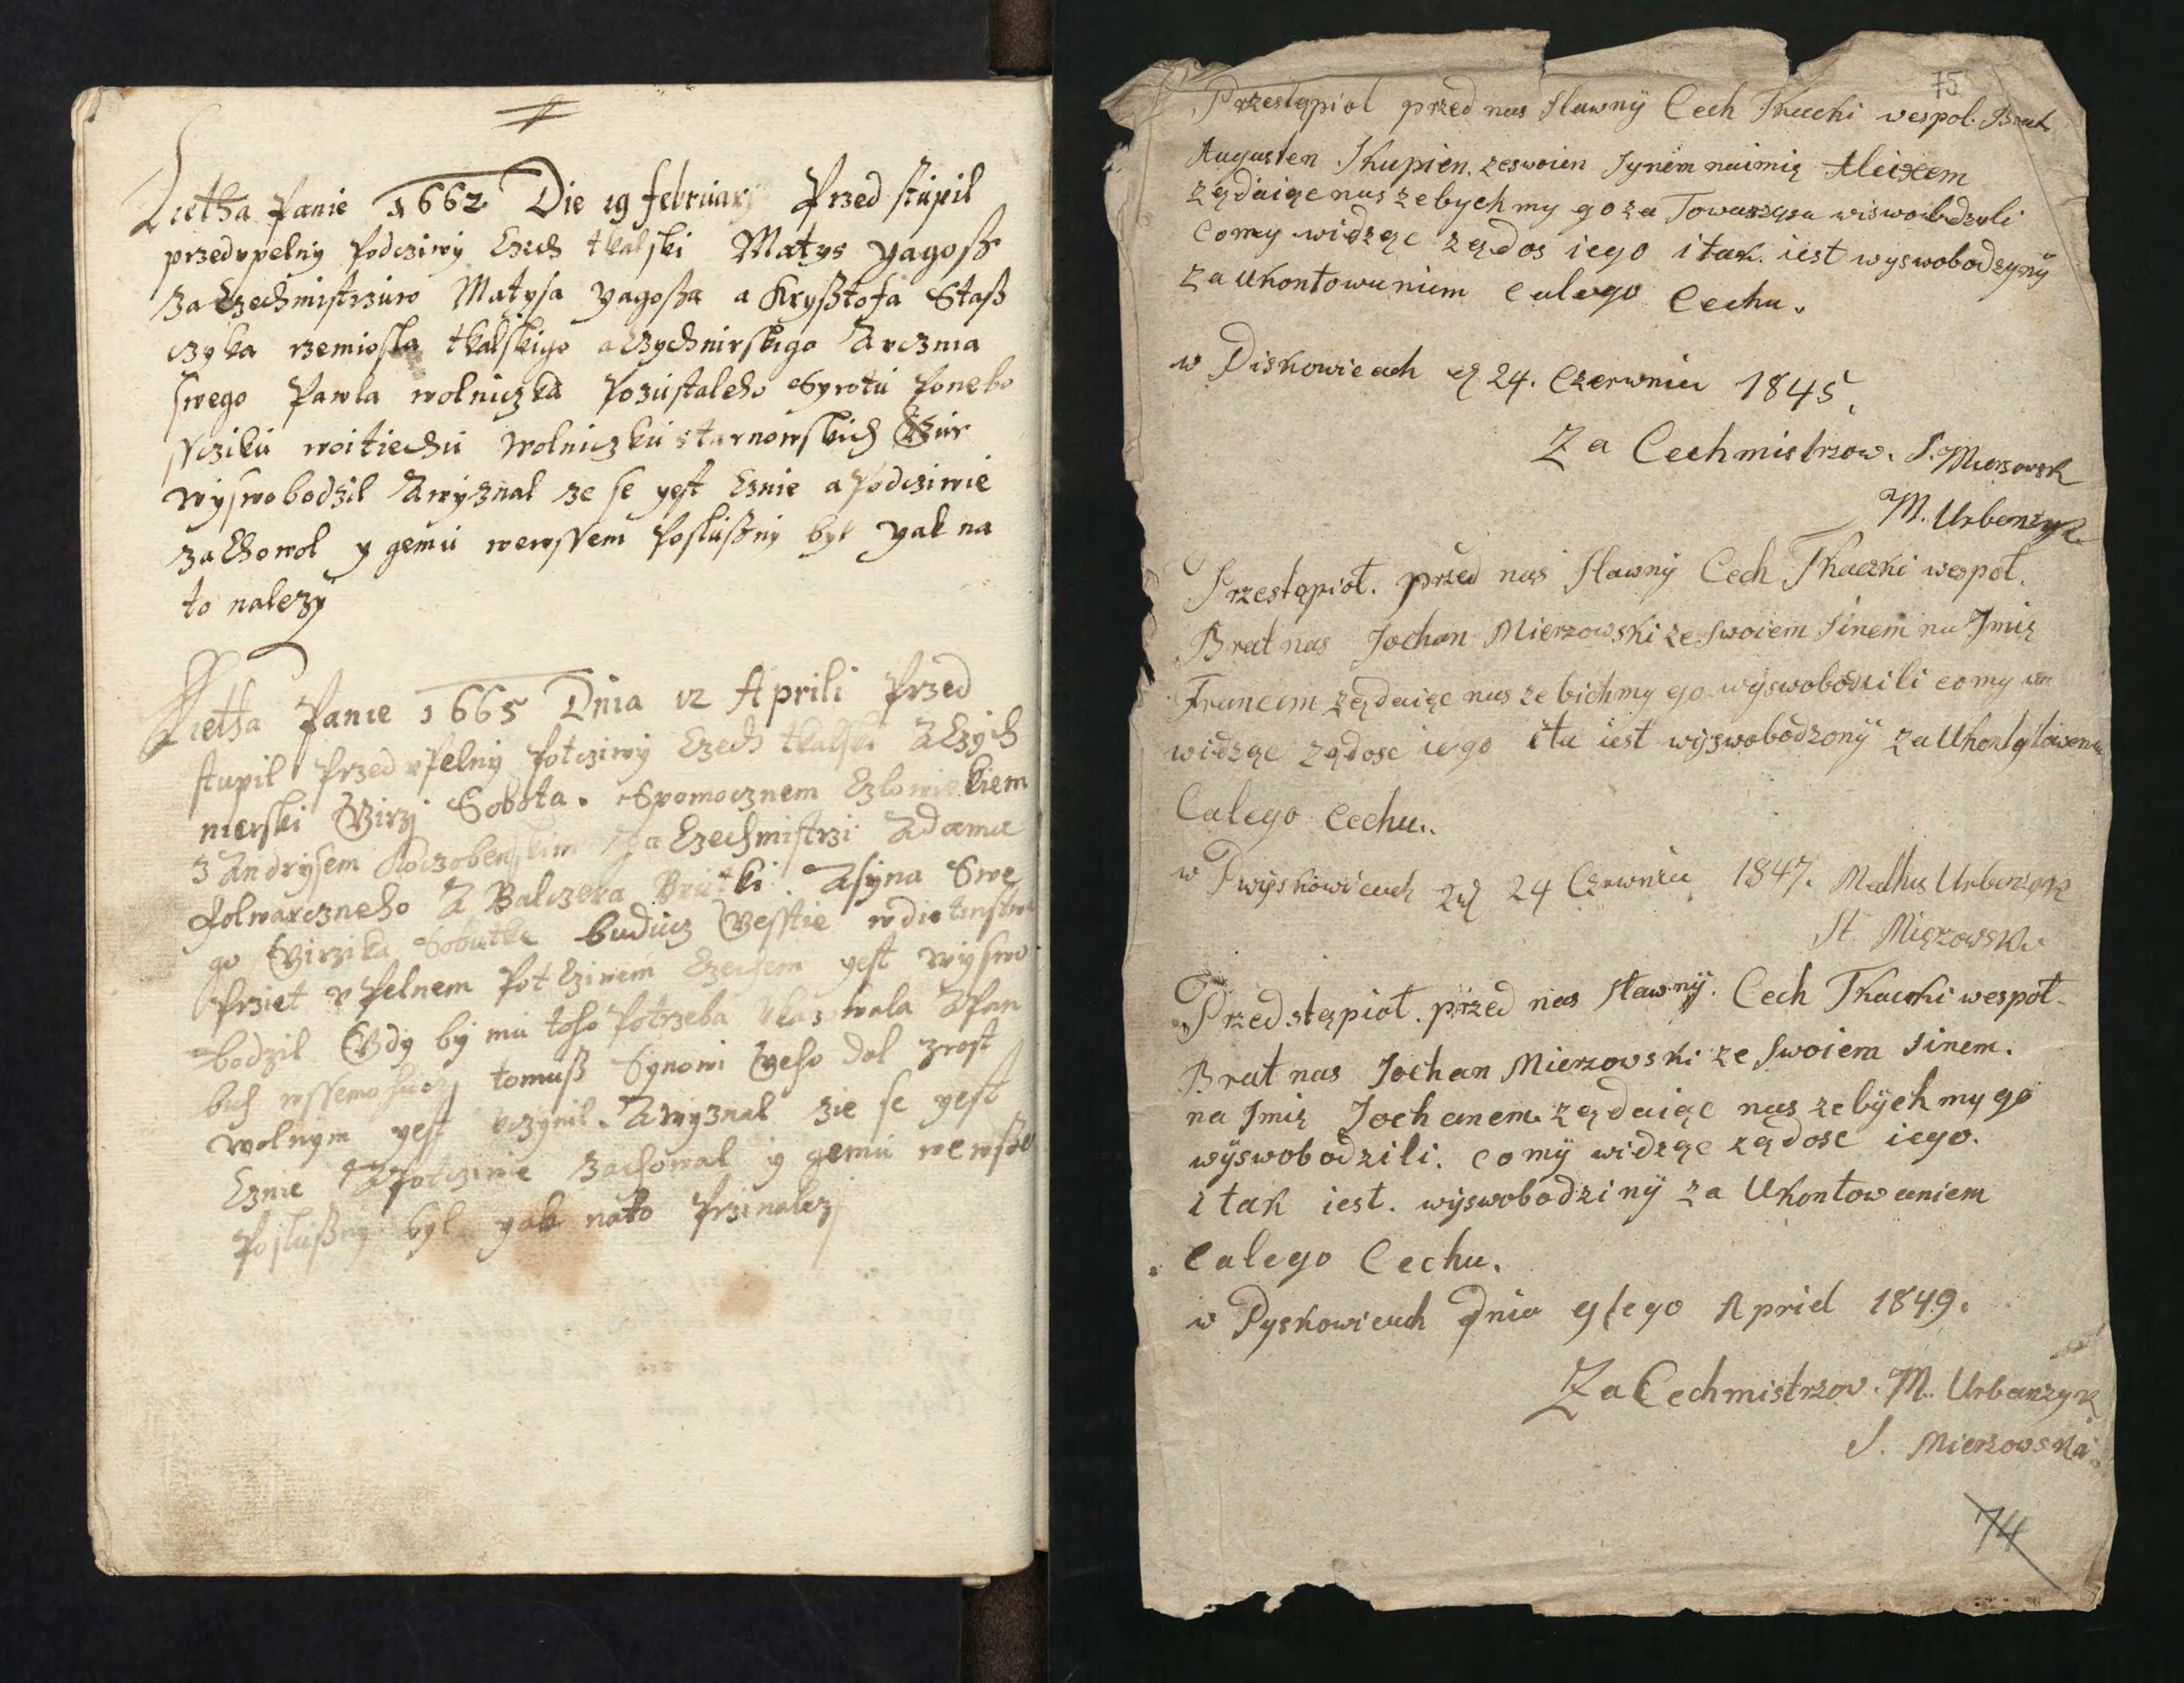 Lietha Panie 1662 Die 19 february Przed stupil
przedupelny Podcziwy Czech tkalski Matys Yagosß
za Czechmistrzuw Matysa Yagosßa a Krysßtofa Stasß
czyka rzemiosla tkalskigo a Czychnirskigo A ucznia
swego Pawla wolniczka Pozustaleho Syrotu Ponebo
sscziku woitiechu Wolniczku starnowskich
wyswobodzil A wyznal ze se yest Cznie a Podcziwie
zachowol y gemu wewssem Poslusßny byl yak na
to nalezy
Lietha Panie 1665 Dnia 12 Aprili Przed
stupil Przed upelny Potcziwy Czech tkalski A Czych
nierski Girzj Sobota. Spomocznem Czlowiekiem
z Andrysem za Czechmistrzi Adama
folwarczneho A Balczera Brutki. A syna Swe
go Girzika Sobutka buducz gesstie wdietinstwi
Prziet upelnem Potcziwem Czechem yest wyswo
bodzil Gdy by mu toho Potrzeba ukazowala A Pan
buh wssemohuczj tomusß Synowi geho dal zrost
wolnym yest uczynil. A wyznal zie se yest
Cznie A Potcziwie zachowal y gemu wewsse
Poslusßny byl yak nato Przinalezj
75
Przestąpiol przed nas Slawnÿ Cech Tkacki wespol. Brat
Augusten Skupien. zeswoien Synem naimię Aleixem
ządaiąc nas zebychmy go za Towarzysza wiswobodzyli
Comy widząc ządos iego i tak. iest wyswobodzynÿ
za Ukontowaniem calego Cechu.
w Piskowicach d 24. Czerwnia 1845.
Za Cechmistrzow. S. Mierzowsk
M. Urbanzyk
Przestąpioł. przed nas Sławnÿ Cech Tkaczki wespoł.
Brat nas Jochan Mierzowski ze Swoiem Sinem na Jmię
Francem ządaiąc nas ze bichmy go wÿswobodzili comy
widząc ządosc iego ita iest wÿswobodzonÿ za Ukontątowaniem
Całego Cechu..
w Pwÿskowicach 24 Czerwnia 1847. Mathus Urbanzyk
St. Mięzowski
Przedstąpioł. przed nas sławnÿ. Cech Tkacki wespoł.
Brat nas Jochan Mierzowski ze Swoiem Sinem.
na Jmię Jochanem. ządaiąc nas zebÿchmy go
wÿswobodzili. comÿ widząc ządosc iego.
i tak iest. wÿswobodzinÿ za Ukontowaniem
całego Cechu.
w Pyskowicach dnia 9tego Apriel 1849.
Za Cechmistrzov. M. Urbanzyk
S. Mierzowski
74